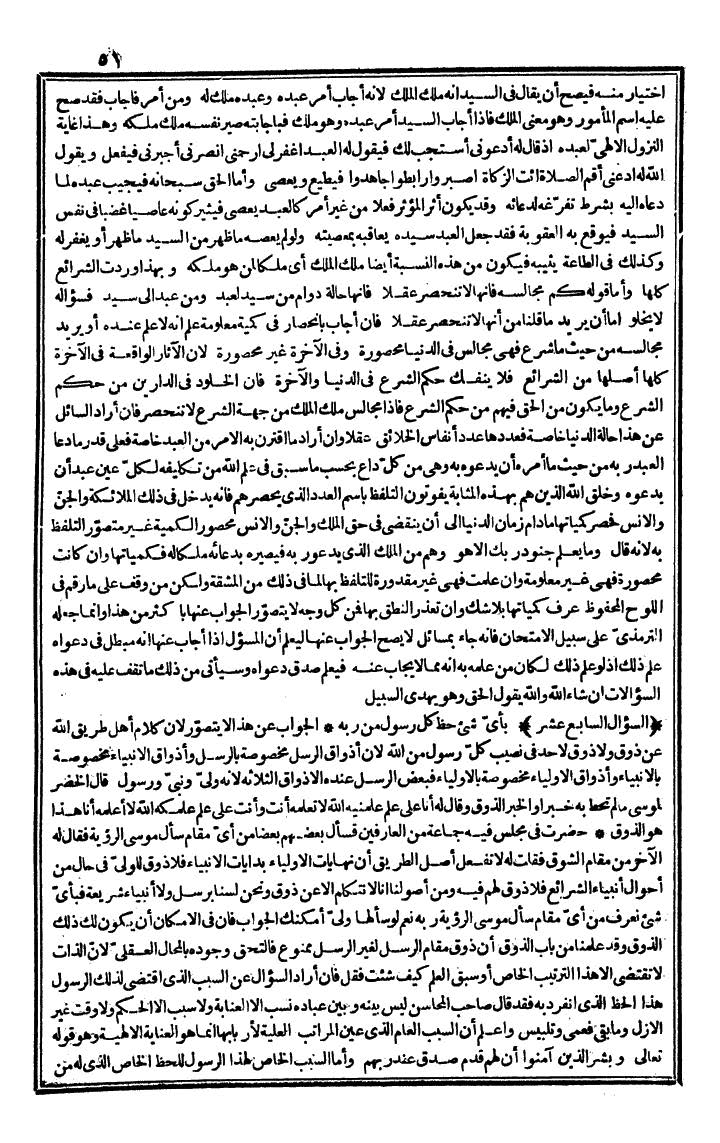 ٥١
اختيار منه فيصح أن يقال فى السيد انه ملك الملك لانه أجاب أمر عبده وعبده ملك له ومن أمر فاجاب فقد صح
عليه اسم المأمور وهو معنى الملك فاذا أجاب السيد أمر عبده وهو ملك فباجابته صير نفسه ملك ملكه وهذا غاية
النزول الالهىّ لعبده اذ قال له أدعونى أستجب لك فيقول له العبد اغفر لى ارحنى انصرنى أجبرنى فيفعل ويقول
الله له ادعنى أقم الصلاة ائت الزكاة اصبروا رابطوا جاهدوا فيطيع ويعصى وأما الحق سبحانه فيجيب عبده لما
دعاه اليه بشرط تفرّغه لدعائه وقد يكون أثر المؤثر فعلا من غير أمر كالعبد يعصى فيثير كونه عاصيا غضبا فى نفس
السيد فيوقع به العقوبة فقد جعل العبد سيده يعاقبه بمعصيته ولو لم يعصه ماظهر من السيد ماظهر أو يغفر له
وكذلك فى الطاعة يثيبه فيكون من هذه النسبة أيضا ملك الملك أى ملكا لمن هو ملكه وبهذا وردت الشرائع
كلها وأما قوله كم مجالسه فانها لا تنحصر عقلا فانها حالة دوام من سيد لعبد ومن عبد الى سيد فسؤاله
لا يخلو اما أن يريد ماقلنا من أنها لا تنحصر عقلا فان أجاب بانحصار فى كمية معلومة علم انه لا علم عنده أو يريد
مجالسه من حيث ماشرع فهى مجالس فى الدنيا محصورة وفى الآخرة غير محصورة لان الآثار الواقعة فى الآخرة
كلها أصلها من الشرائع فلا ينفك حكم الشرع فى الدنيا والآخرة فان الخلود فى الدارين من حكم
الشرع وما يكون من الحق فيهم من حكم الشرع فاذا مجالس ملك الملك من جهة الشرع لا تنحصر فان أراد السائل
عن هذا حالة الدنيا خاصة فعددها عدد أنفاس الخلائق عقلا وان أراد ما اقترن به الامر من العبد خاصة فعلى قدر مادعا
العبد ربه من حيث ما أمره أن يدعوه به وهى من كلّ داع بحسب ماسبق فى علم الله من تكليفه لكلّ عين عبد أن
يدعوه وخلق الله الذين هم بهذه المثابة يفوتون التلفظ باسم العدد الذى يحصرهم فانه يدخل فى ذلك الملائكة والجنّ
والانس فحصر كمياتها مادام زمان الدنيا الى أن ينقضى فى حق الملك والجنّ والانس محصور الكمية غير متصوّر التلفظ
به لانه قال ومايعلم جنود ربك الا هو وهم من الملك الذى يدعو ربه فيصيره بدعائه ملكا له فكمياتها وان كانت
محصورة فهى غير معلومة وان علمت فهى غير مقدورة للتلفظ بها لما فى ذلك من المشقة ولكن من وقف على مارقم فى
اللوح المحفوظ عرف كمياتها بلاشك وان تعذر النطق بها فمن كل وجه لا يتصوّر الجواب عنها با كثر من هذا وانما جعله
الترمذىّ على سبيل الامتحان فانه جاء بمسائل لا يصح الجواب عنها ليعلم أن المسؤل اذا أجاب عنها انه مبطل فى دعواه
علم ذلك اذ لو علم ذلك لكان من علمه به انه مما لا يجاب عنه فيعلم صدق دعواه وسيأتى من ذلك ماتقف عليه فى هذه
السؤالات ان شاء الله والله يقول الحق وهو يهدى السبيل
﴿السؤال السابع عشر﴾ بأىّ شئ حظ كل رسول من ربه * الجواب عن هذا لا يتصوّر لان كلام أهل طريق الله
عن ذوق ولا ذوق لاحد فى نصيب كلّ رسول من الله لان أذواق الرسل مخصوصة بالرسل وأذواق الانبياء مخصوصة
بالانبياء وأذواق الاولياء مخصوصة بالاولياء فبعض الرسل عنده الاذواق الثلاثة لانه ولىّ ونبىّ ورسول قال الخضر
لموسى مالم تحط به خبرا والخبر الذوق وقال له أنا على علم علمنيه الله لا تعلمه أنت وأنت على علم علمكه الله لا أعلمه أنا هذا
هو الذوق * حضرت فى مجلس فيه جماعة من العارفين فسأل بعضهم بعضا من أىّ مقام سأل موسى الرؤية فقال له
الآخر من مقام الشوق فقلت له لا تفعل أصل الطريق أن نهايات الاولياء بدايات الانبياء فلا ذوق للولىّ فى حال من
أحوال أنبياء الشرائع فلا ذوق لهم فيه ومن أصولنا انا لا نتكلم الا عن ذوق ونحن لسنا برسل ولا أنبياء شريعة فبأىّ
شئ نعرف من أىّ مقام سأل موسى الرؤية ربه نعم لو سألها ولىّ أمكنك الجواب فان فى الامكان أن يكون لك ذلك
الذوق وقد علمنا من باب الذوق أن ذوق مقام الرسل لغير الرسل ممنوع فالتحق وجوده بالمحال العقلىّ لانّ الذات
لا تقتضى الا هذا الترتيب الخاص أو سبق العلم كيف شئت فقل فان أراد السؤال عن السبب الذى اقتضى لذلك الرسول
هذا الحظ الذى انفرد به فقد قال صاحب المحاسن ليس بينه وبين عباده نسب الا العناية ولا سبب الا الحكم ولا وقت غير
الازل ومابقى فعمى وتلبيس واعلم أن السبب العام الذى عين المراتب العلية لأربابها انما هو العناية الالهية وهو قوله
تعالى وبشر الذين آمنوا أن لهم قدم صدق عند ربهم وأما السبب الخاص لهذا الرسول للحظ الخاص الذى له من